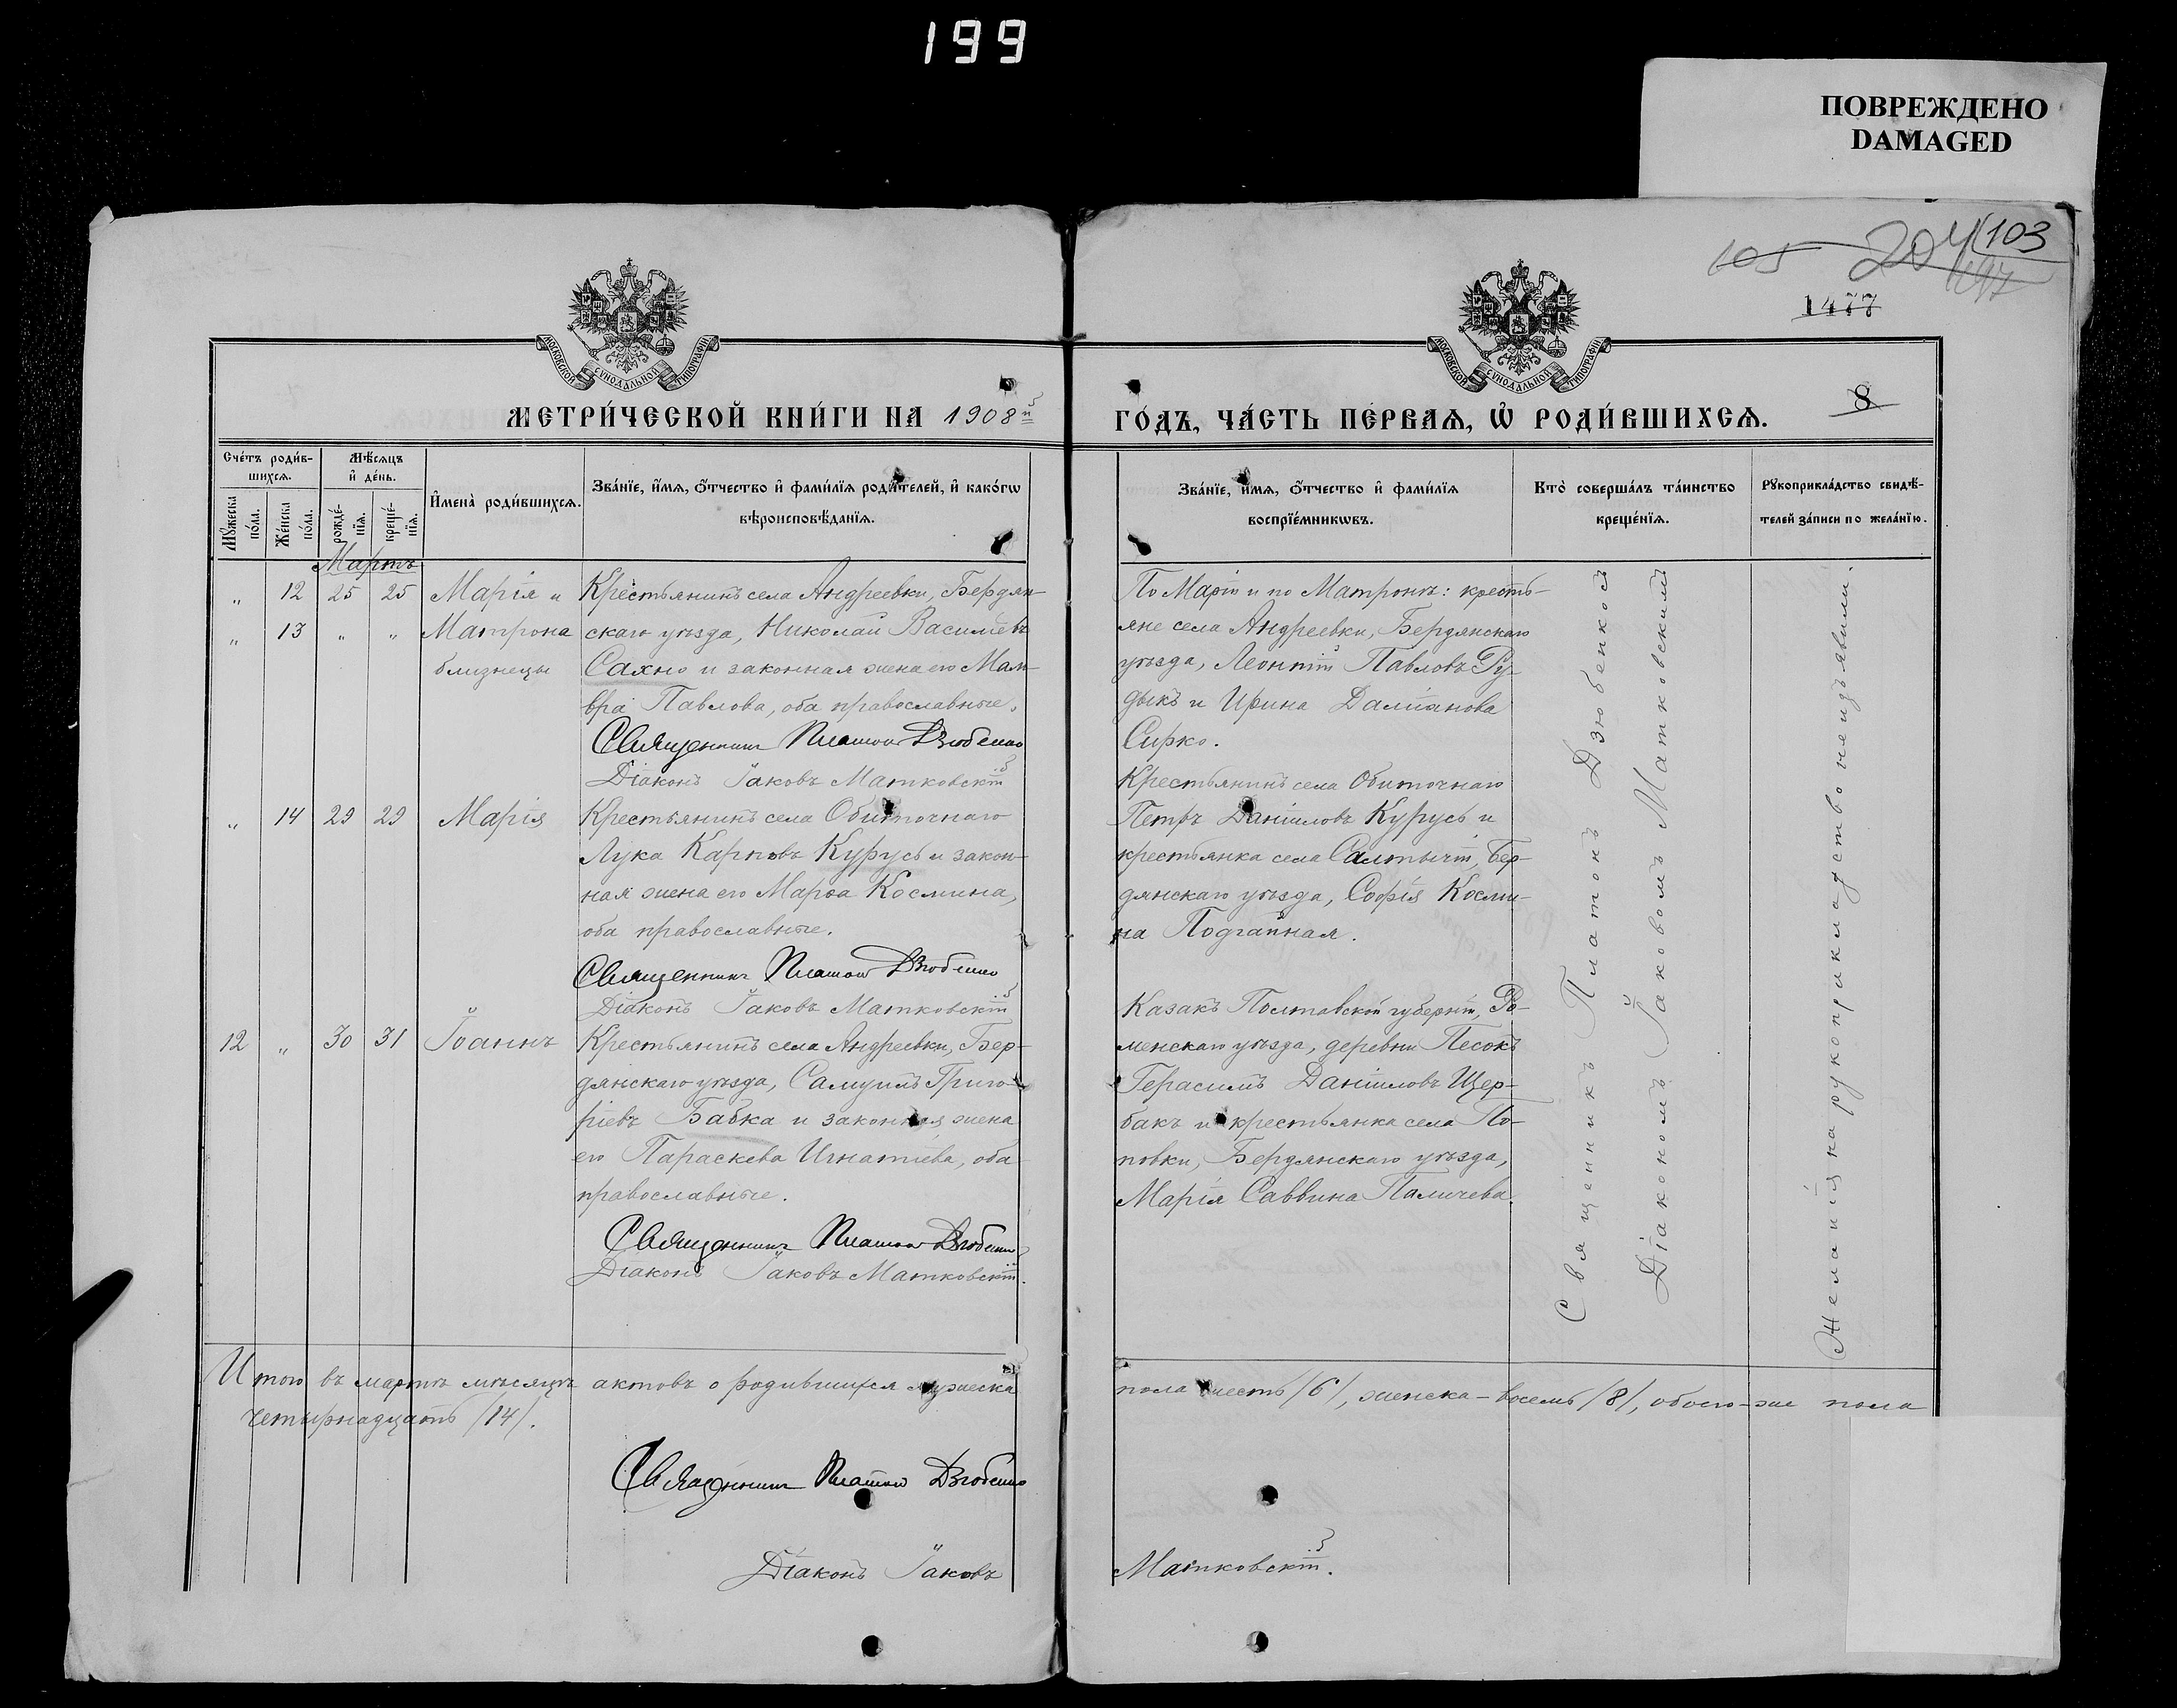 199
ПОВРЕЖДЕНО
DAMAGED
103
105
204
1477
МОСКОВСКОЙ СѴНОДАЛЬНОЙ ТИПОГРАФІИ
МОСКОВСКОЙ СѴНОДАЛЬНОЙ ТИПОГРАФІИ
МЕТРИ́ЧЕСКОЙ КНИ́ГИ НА 1908й
ГО́ДЪ, ЧА́СТЬ ПЕ́РВАѦ, Ѡ РОДИ́ВШИХСѦ.
8
Сче́тъ роди́в-
шихсѧ.
Мꙋ́жеска
по́ла.
Же́нска
по́ла.
Мѣ́сѧцъ
и҆ де́нь.
рожде́-
нїѧ.
креще́-
нїѧ.
И҆мена̀ роди́вшихсѧ.
Зва́нїе, и҆́мѧ, ѻ҆́тчество и҆ фами́лїѧ роди́телей, и҆ како́гѡ
вѣроисповѣ́данїѧ.
Зва́нїе, и҆́мѧ, ѻ҆́тчество и҆ фами́лїѧ
воспрїе́мникѡвъ.
Кто̀ соверша́лъ та́инство
креще́нїѧ.
Рꙋкоприкла́дство свидѣ́-
телей за́писи по жела́нїю.
Мартъ
„ 12 25 25 Марія и
„ 13 „ „ Матрона
близнецы
Крестьянинъ села Андреевки, Бердян-
скаго уѣзда, Николай Васильевъ
Сахно и законная жена его Мав-
вра Павлова, оба православные.
Священникъ Платонъ Дзюбенко
Діаконъ Іаковъ Матковскій
По Маріи и по Матронѣ: кресть-
яне села Андреевки, Бердянскаго
уѣзда, Леонтій Павловъ Ру-
дыкъ и Ирина Даміанова
Сирко.
„ 14 29 29 Марія
Крестьянинъ села Обиточнаго
Лука Карповъ Курусь и закон-
ная жена его Марѳа Космина,
оба православные.
Священникъ Платонъ Дзюбенко
Діаконъ Іаковъ Матковскій
Крестьянинъ села Обиточнаго
Петръ Даніиловъ Курусь и
крестьянка села Салтычіи, Бер-
дянскаго уѣзда, Софія Косми-
на Подгайная.
12 „ 30 31 Іоаннъ
Крестьянинъ села Андреевки, Бер-
дянскаго уѣзда, Самуилъ Григо-
ріевъ Бабка и законная жена
его Параскева Игнатіева, оба
православные.
Священникъ Платонъ Дзюбенко
Діаконъ Іаковъ Матковскій.
Казакъ Полтавской губерніи, Ро-
менскаго уѣзда, деревни Песокъ
Герасимъ Даніиловъ Щер-
бакъ и крестьянка села По-
повки, Бердянскаго уѣзда,
Марія Саввина Паличева.
Священникъ Платонъ Дзюбенко съ
Діакономъ Іаковомъ Матковскимъ
Желанія на рукоприкладство не изъявили.
Итого въ мартѣ мѣсяцѣ актовъ о родившихся мужеска пола шесть /6/, женска – восемь /8/, обоего-же пола
четырнадцать /14/.
Священникъ Платонъ Дзюбенко
Діаконъ Іаковъ Матковскій.